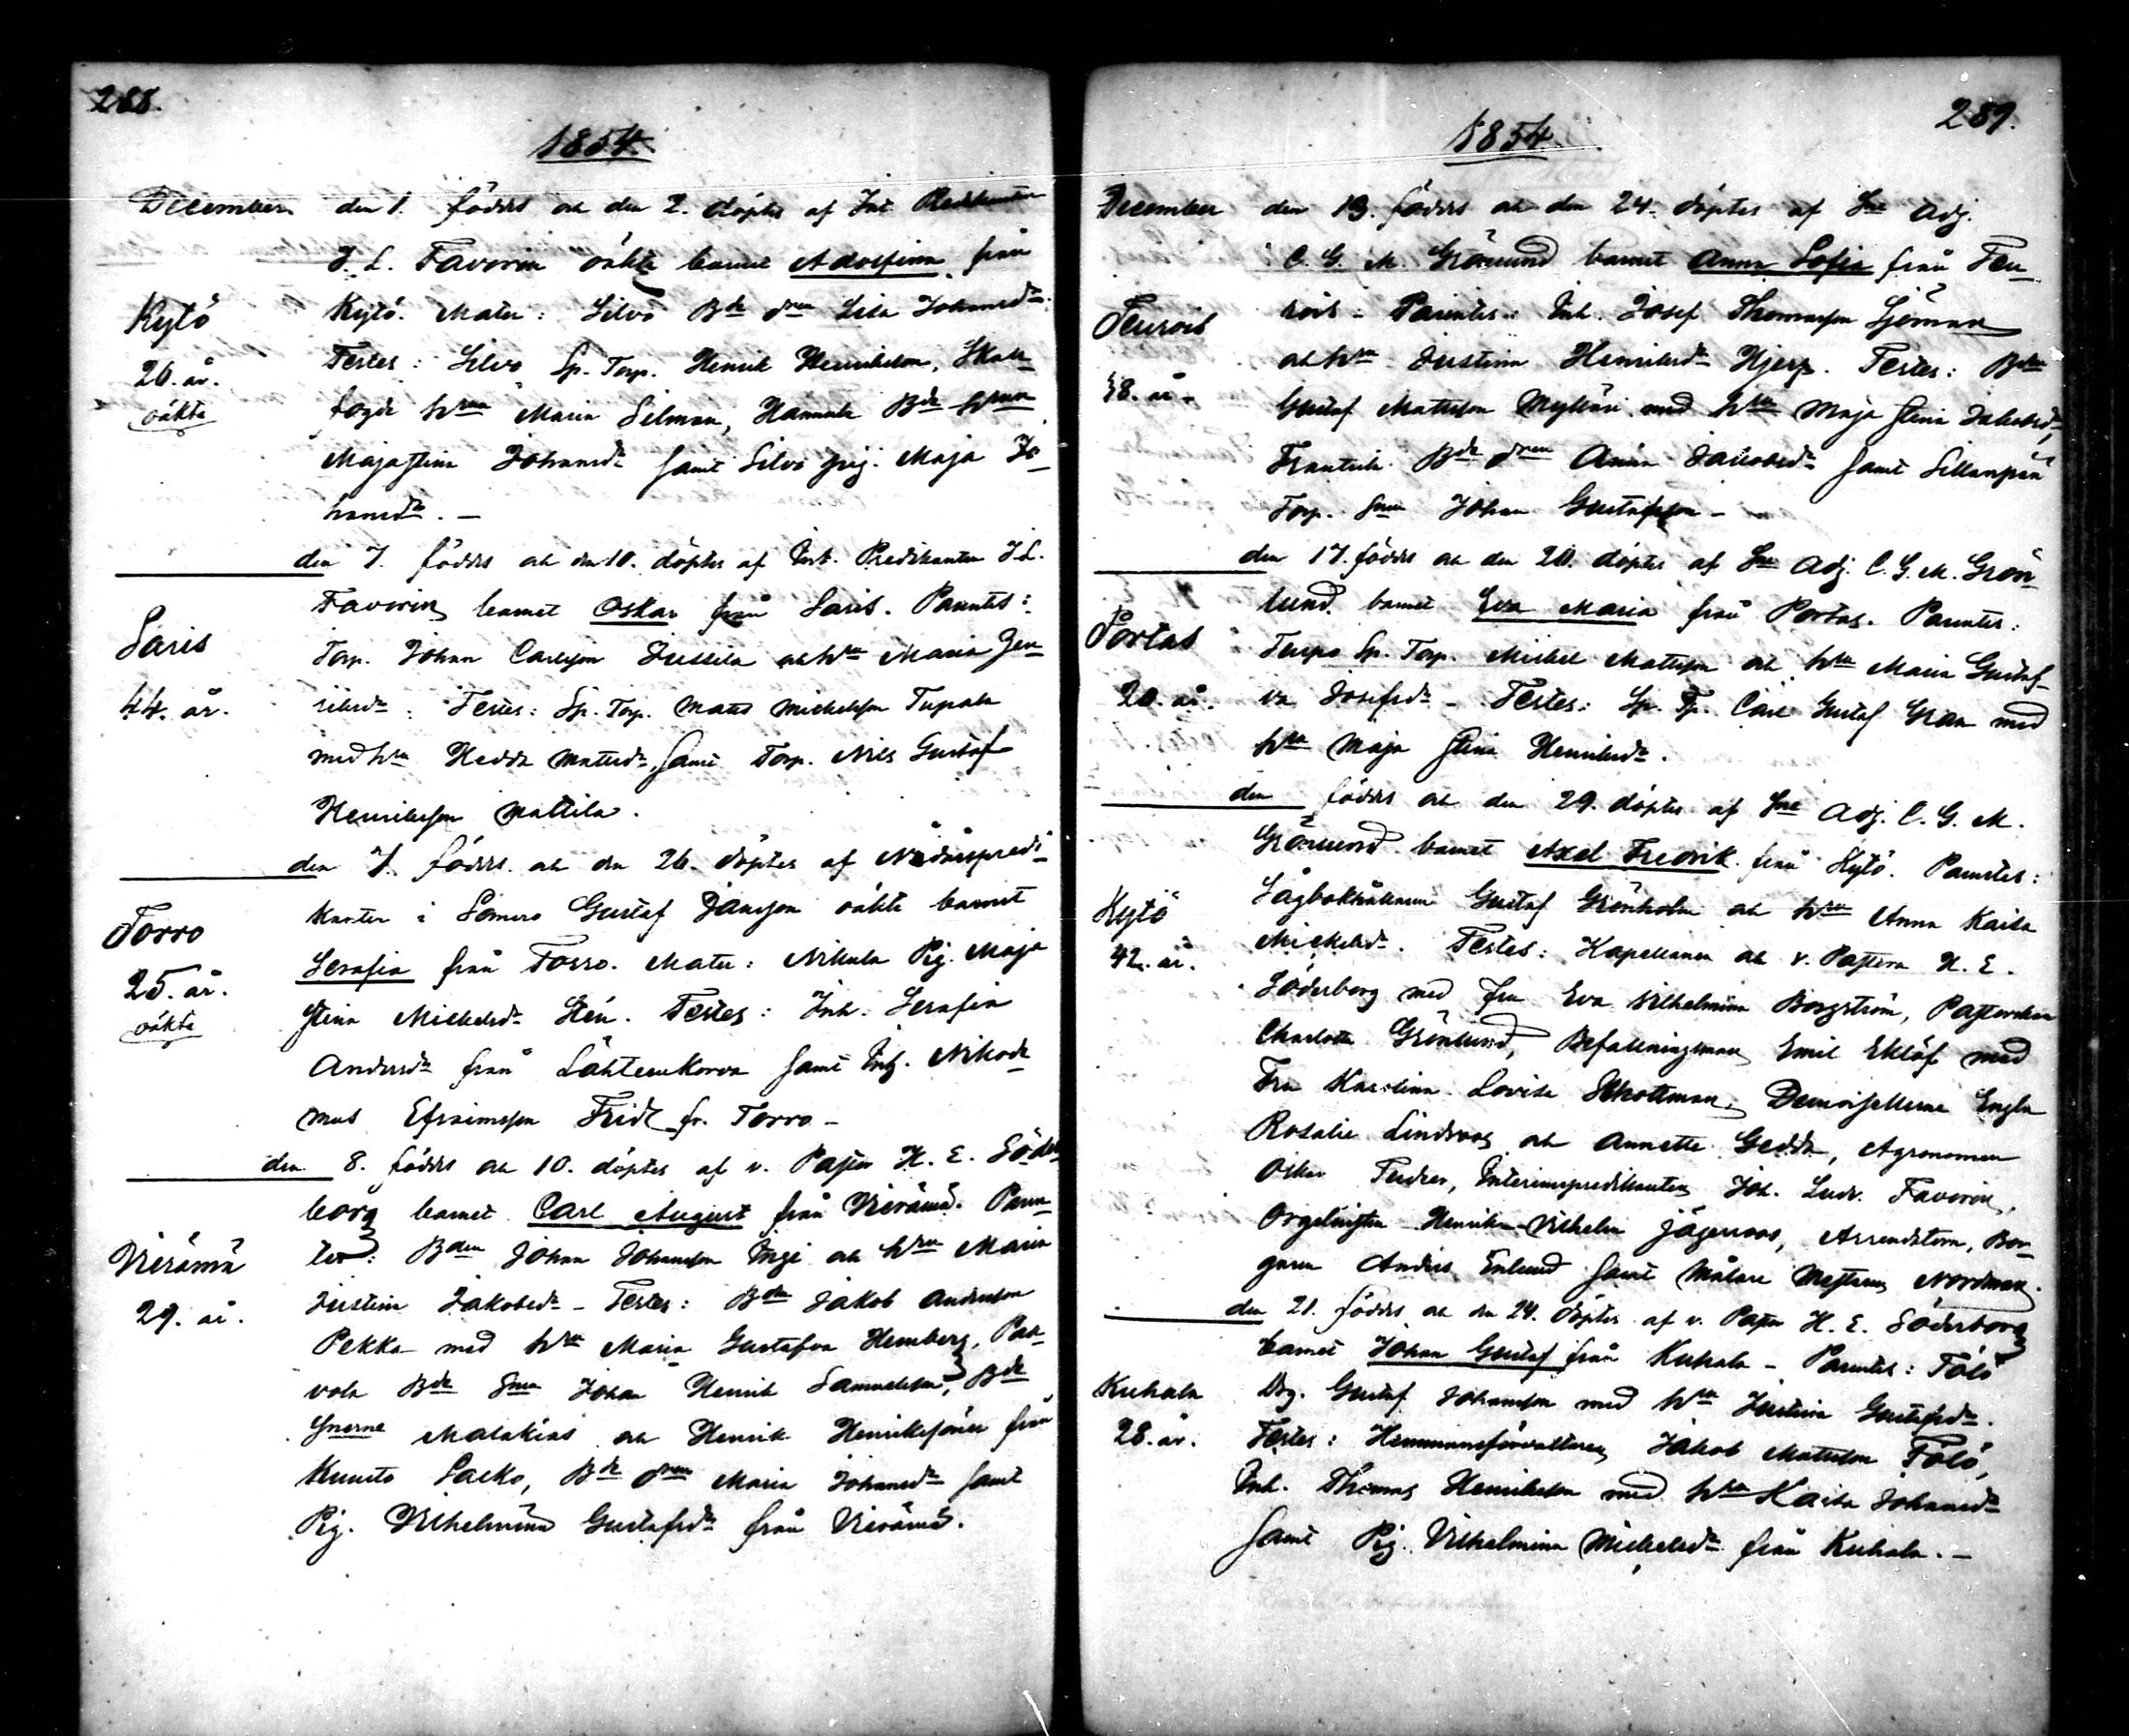 288.
1854.
December den 1. föddes och den 2. döptes af Int. Predikanten
J. L. Favorin oäkta barnet Adolfina från
Kytö Kytö. Mater: Silvo Bde dren Lisa Johansdr.
26. år. Testes: Silvo Sp. Torp. Henrik Henrikson, Skall-
oäkta fogde hrun Maria Silman, Hannula Bde hrun
Majastina Johansdr samt Silvo pig. Maja Jo-
hansdr. –
den 7. föddes och den 10. döptes af Int. Predikanten J. L.
Favorin barnet Oskar från Saris. Parentes:
Saris Torp. Johan Carlsson Jussila och hru Maria Hen-
44. år. riksdr. Testes: Sp. Torp. Matts Michelsson Tupala
med hru Hedda Mattsdr, samt Torp. Nils Gustaf
Henriksson Mattila.
den 7. föddes och den 26. döptes af Nödårspredi-
Torro kanten i Somero Gustaf Jansson oäkta barnet
Serafia från Torro. Mater: Nikula Pig. Maja
25. år. stina Michelsdr Stén. Testes: Inh. Serafia
oäkta Andersdr från Lähteenkorva samt Inh. Nikode
mus Efraimsson Frid fr. Torro –
den 8. föddes och 10. döptes af v. Pastor H. E. Söder
borg barnet Carl August från Vieremä. Paren-
Vieremä tes: Bden Johan Johansson Inge och hru Maria
29. år. Justina Jakobsdr – Testes: Bden Jakob Andersson
Pekka med hru Maria Gustafva Hemberg, Pa-
vola Bde Snen Johan Henrik Samuelsson, Bde
Snerne Malakias och Henrik Henrikssöner från
Kuusto Lacko, Bde dren Maria Johansdr samt
Pig. Vilhelmina Gustafsdr från Vieremä.
289.
1854.
December den 13. föddes och den 24. döptes af Sne Adj.
C. G. M. Grönlund barnet Anna Sofia från Teu-
Teurois rois – Parentes: Inh. Josef Thomasson Sjöman
38. år. och hru Justina Henriksdr Hjerp. Testes: Bden
Gustaf Mattsson Mylläri med hru Maja Stina Jakobsdr,
Frantsila Bde dren Anna Jakobsdr samt Sillanpää
Torp. Snen Johan Gustafsson –
den 17. föddes och den 20. döptes af Sne Adj. C. G. M. Grön
Portas lund barnet Eva Maria från Portas. Parentes:
Sp. Torp. Michel Mattsson och hru Maria Gustaf-
20. år. va Josefsdr – Testes: Sp. Tp. Carl Gustaf Gran med
hru Maja Stina Henriksdr.
den föddes och den 29. döptes af Sne Adj. C. G. M.
Grönlund barnet Axel Fredrik från Kytö. Parentes:
Kytö Sågbokhållaren Gustaf Grönholm och hru Anna Kaisa
42. år. Michelsdr. Testes: Kapellanen och v. Pastorn H. E.
Söderborg med fru Eva Vilhelmina Borgström, Pastorskan
Charlotta Grönlund, Befallningsman Emil Eklöf med
Fru Karolina Lovisa Schottman, Demoisellerne Engla
Rosalie Lindroos och Annette Gedda, Agronomen
Oskar Tudeer, Interimspredikanten Joh. Ludv. Favorin,
Orgelnisten Henrik Vilhelm Jägerroos, Arrendatorn, Bor-
garen Anders Enlund samt Målare Mästaren Nordman.
den 21. föddes och den 24. döptes af v. Pastor H. E. Söderborg
barnet Johan Gustaf från Kuhala – Parentes: Tölö
Kuhala Drg. Gustaf Johansson med hru Justina Gustafsdr.
28. år. Testes: Hemmansförvaltaren Jakob Mattsson Tölö,
Inh. Thomas Henrikson med hru Kaisa Johansdr
samt Pig. Vilhelmina Michelsdr från Kuhala. –